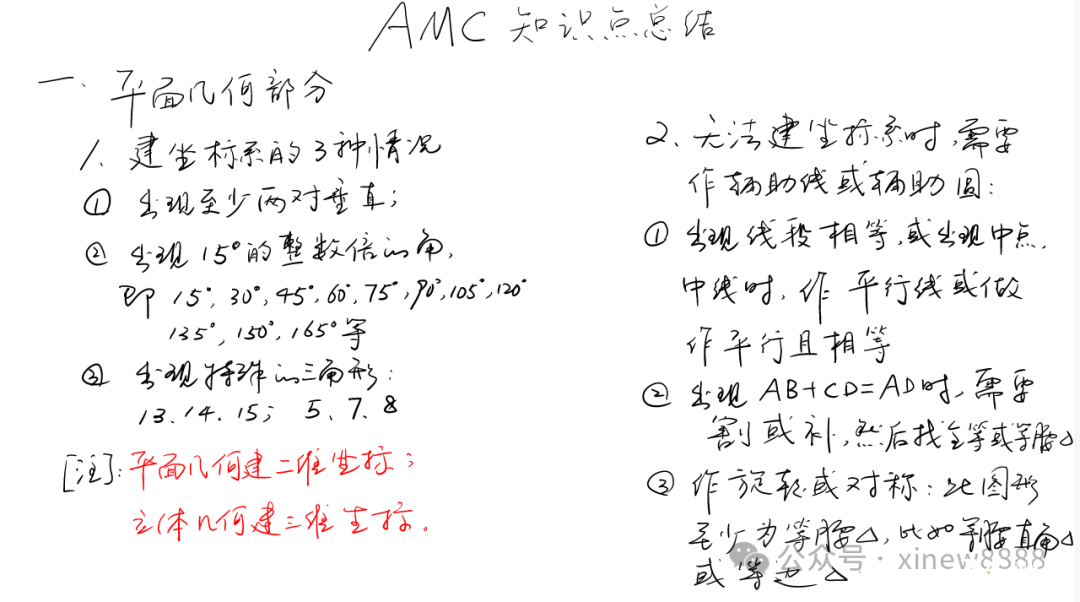 AMC 知识点总结
一、平面几何部分
1、建坐标系的3种情况
① 出现至少两对垂直;
② 出现15°的整数倍的角,
即 15°,30°,45°,60°,75°,90°,105°,120°
135°,150°,165°等
③ 出现特殊的三角形:
13、14、15; 5、7、8
[注]:平面几何建二维坐标;
立体几何建三维坐标.
2、无法建坐标系时,需要
作辅助线或辅助圆:
① 出现线段相等,或出现中点.
中线时,作平行线或做
作平行且相等
② 出现 AB+CD=AD时,需要
割或补,然后找全等或等腰△
③ 作旋转或对称:此图形
至少为等腰△,比如等腰直角△
或等边△
公众号·xinew8388